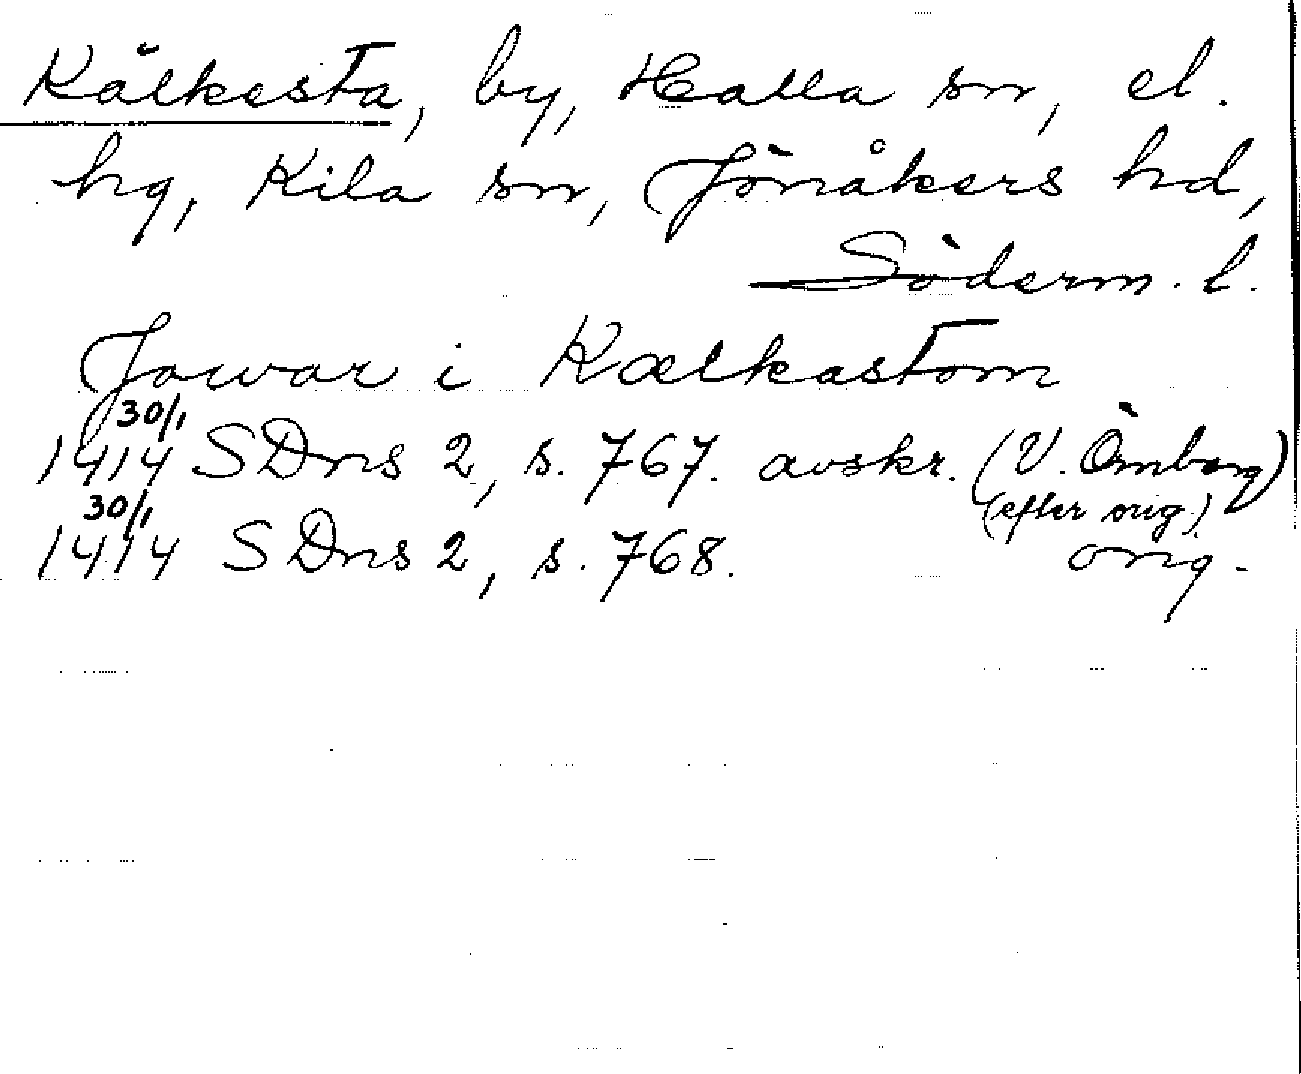 Kälkesta, by, Halla sn, el.
hg, Kila sn, Jönåkers hd,
Söderm. l.
Jowar i Kælkastom
30/1
1414 SDns 2, s. 767. avskr. (V. Örnberg)
30/1 (efter orig.)
1414 SDns 2, s. 768. orig.